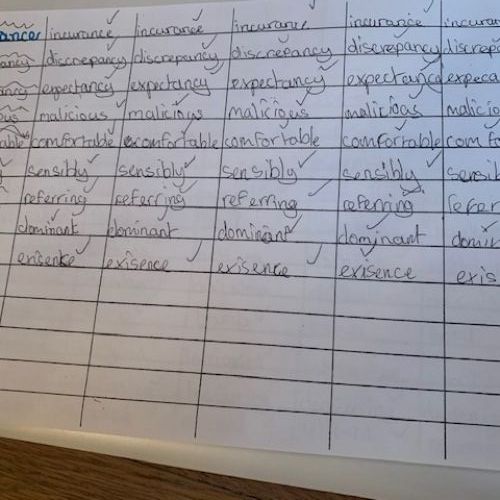 ance incurance incurance incurance incurance incuran
ancy discrepancy discrepancy discrepancy discrepancy discrep
ancy expectancy expectancy expectancy expectance expeca
ous malicious malicious malicious malicious malicio
able comfortable comfortable comfortable comfortable comfo
sensibly sensibly sensibly sensibly sensib
referring referring referring referring refer
dominant dominant dominant dominant domin
exisence exisence exisence exis